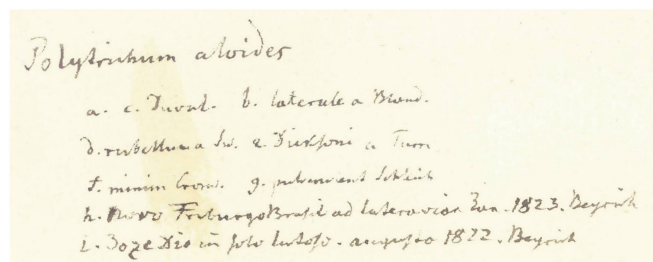 Polytrichum aloides
a. c. Duval. b. laterale a Bland.
d. rubellum a Sw. e. Dicksoni a Turn
f. minim Crom. g. Schleich
h. Novo Friburgo Brasil ad latera viar Jan. 1823. Beyrich
i. in solo lutoso. augusto 1822. Beyrich